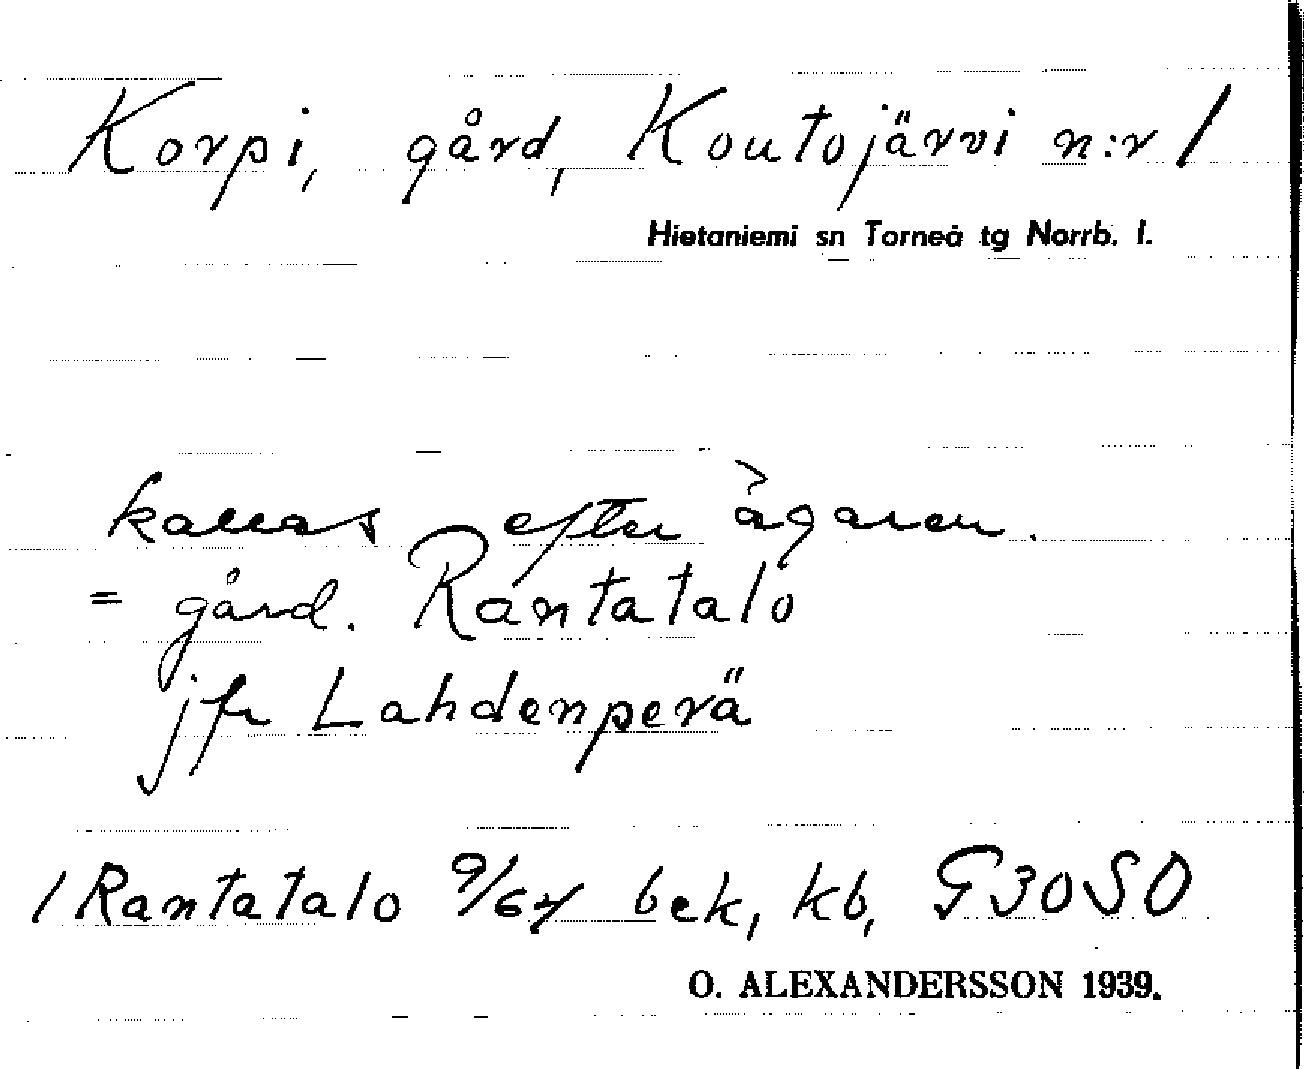 Korpi, gård, Koutojärvi n:r 1
Hietaniemi sn Torneå tg Norrb. l.
kallas efter ägaren.
= gård. Rantatalo
jfr Lahdenperä
/ Rantatalo 9/64 bek, kb, G30SO
O. ALEXANDERSSON 1939.